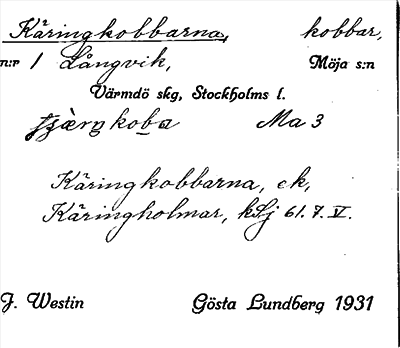 Käringkobbarna, kobbar,
n:r 1 Långvik, Möja s:n
Värmdö skg, Stockholms l.
koba Ma 3
Käringkobbarna, ek,
Käringholmar, kSj 61.7.V.
J. Westin Gösta Lundberg 1931